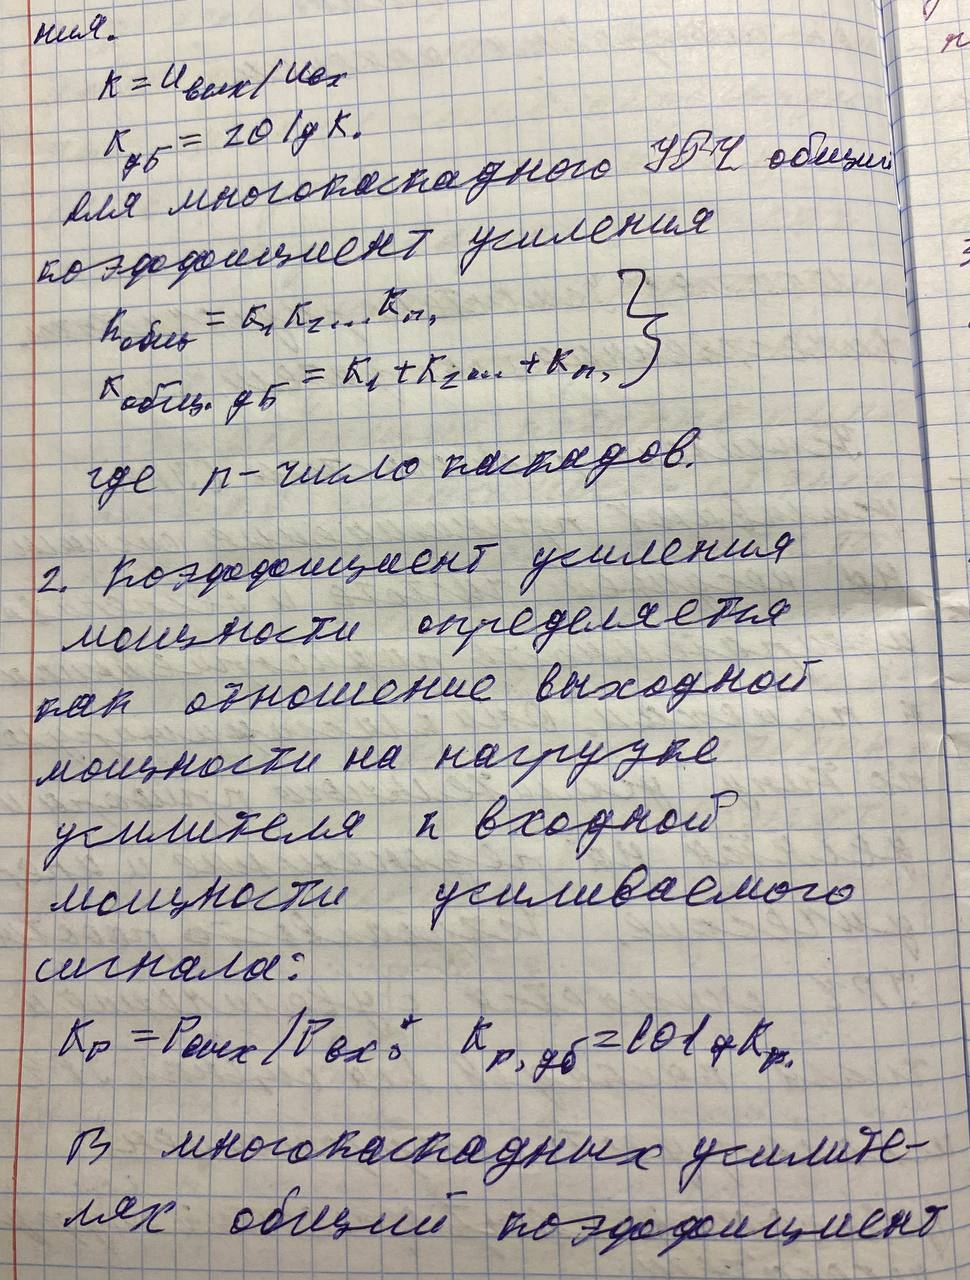 ния.
K = Uвых/Uвх
KдБ = 20 lg K.
Для многокаскадного УБЧ общий
коэффициент усиления
Kобщ = K1 K2 ... Kn,
Kобщ. дБ = K1 + K2 ... + Kn, }
где n - число каскадов.
2. Коэффициент усиления
мощности определяется
как отношение выходной
мощности на нагрузке
усилителя к входной
мощности усиливаемого
сигнала:
Kр = Pвых/Pвх; Kр, дб = 10 lg Kр.
В многокаскадных усилите-
лях общий коэффициент